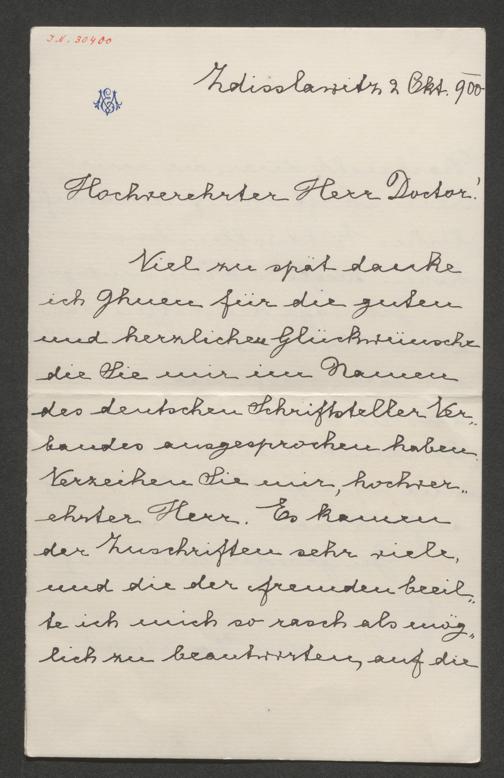 J.N. 30400
Zdisslawitz 2 Okt. 900
Hochverehrter Herr Doctor!
Viel zu spät danke
ich Ihnen für die guten
und herzlichen Glückwünsche
die Sie mir im Namen
des deutschen Schriftsteller Ver„
bandes ausgesprochen haben.
Verzeihen Sie mir, hochver„
ehrter Herr. Es kamen
der Zuschriften sehr viele,
und die der fremden beeil„
te ich mich so rasch als mög„
lich zu beantworten, auf die